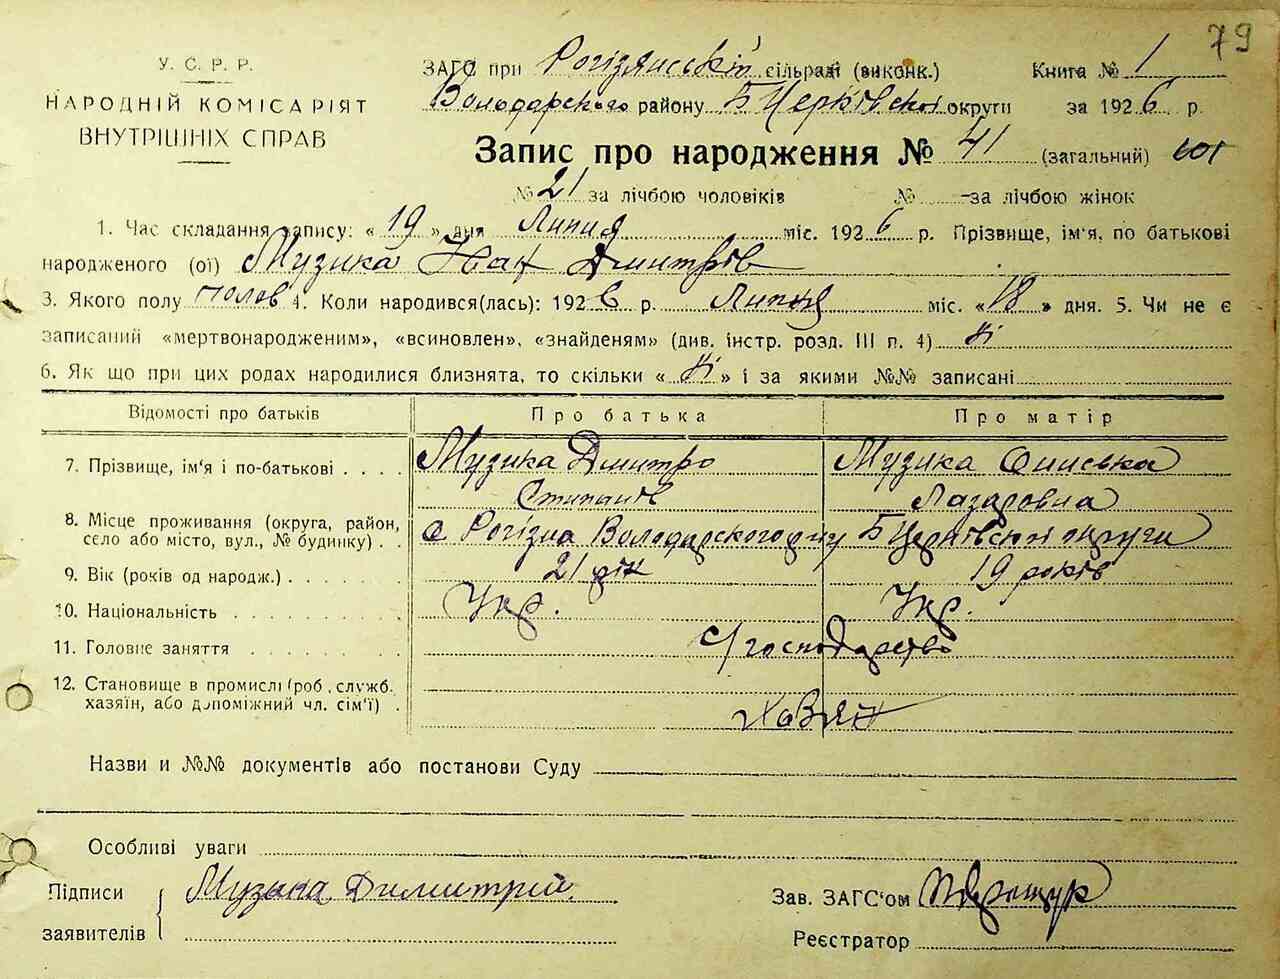 79
У. С. Р. Р.
НАРОДНІЙ КОМІСАРІЯТ
ВНУТРІШНІХ СПРАВ
ЗАГС при Рогізянській сільраді (виконк.) Книга № 1
Володарского району Б Церківської округи за 1926 р.
Запис про народження № 41 (загальний) 101
№ 21 за лічбою чоловіків № - за лічбою жінок
1. Час складання запису: « 19 » дня Липня міс. 1926 р. Прізвище, ім'я, по батькові
народженого (ої) Музика Іван Дмитрів
3. Якого полу 4. Коли народився(лась): 1926 р. Липня міс. «18» дня. 5. Чи не є
записаний «мертвонародженим», «всиновлен», «знайденям» (див. інстр. розд. III п. 4) ні
6. Як що при цих родах народилися близнята, то скільки « ні » і за якими №№ записані
Відомості про батьків Про батька Про матір
7. Прізвище, ім'я і по-батькові Музика Дмитро Музика Ониська
Степанів Лазаровна
8. Місце проживання (округа, район,
село або місто, вул., № будинку) с Рогізна Володарского р-ну Б Церківської округи
9. Вік (років од народж.) 21 рік 19 років
10. Національність Укр. Укр.
11. Головне заняття с/господарство
12. Становище в промислі (роб., служб.
хазяїн, або допоміжний чл. сім'ї) Хазяїн
Назви и №№ документів або постанови Суду
Особливі уваги
Підписи Музика Димитрій Зав. ЗАГС'ом
заявителів Реєстратор